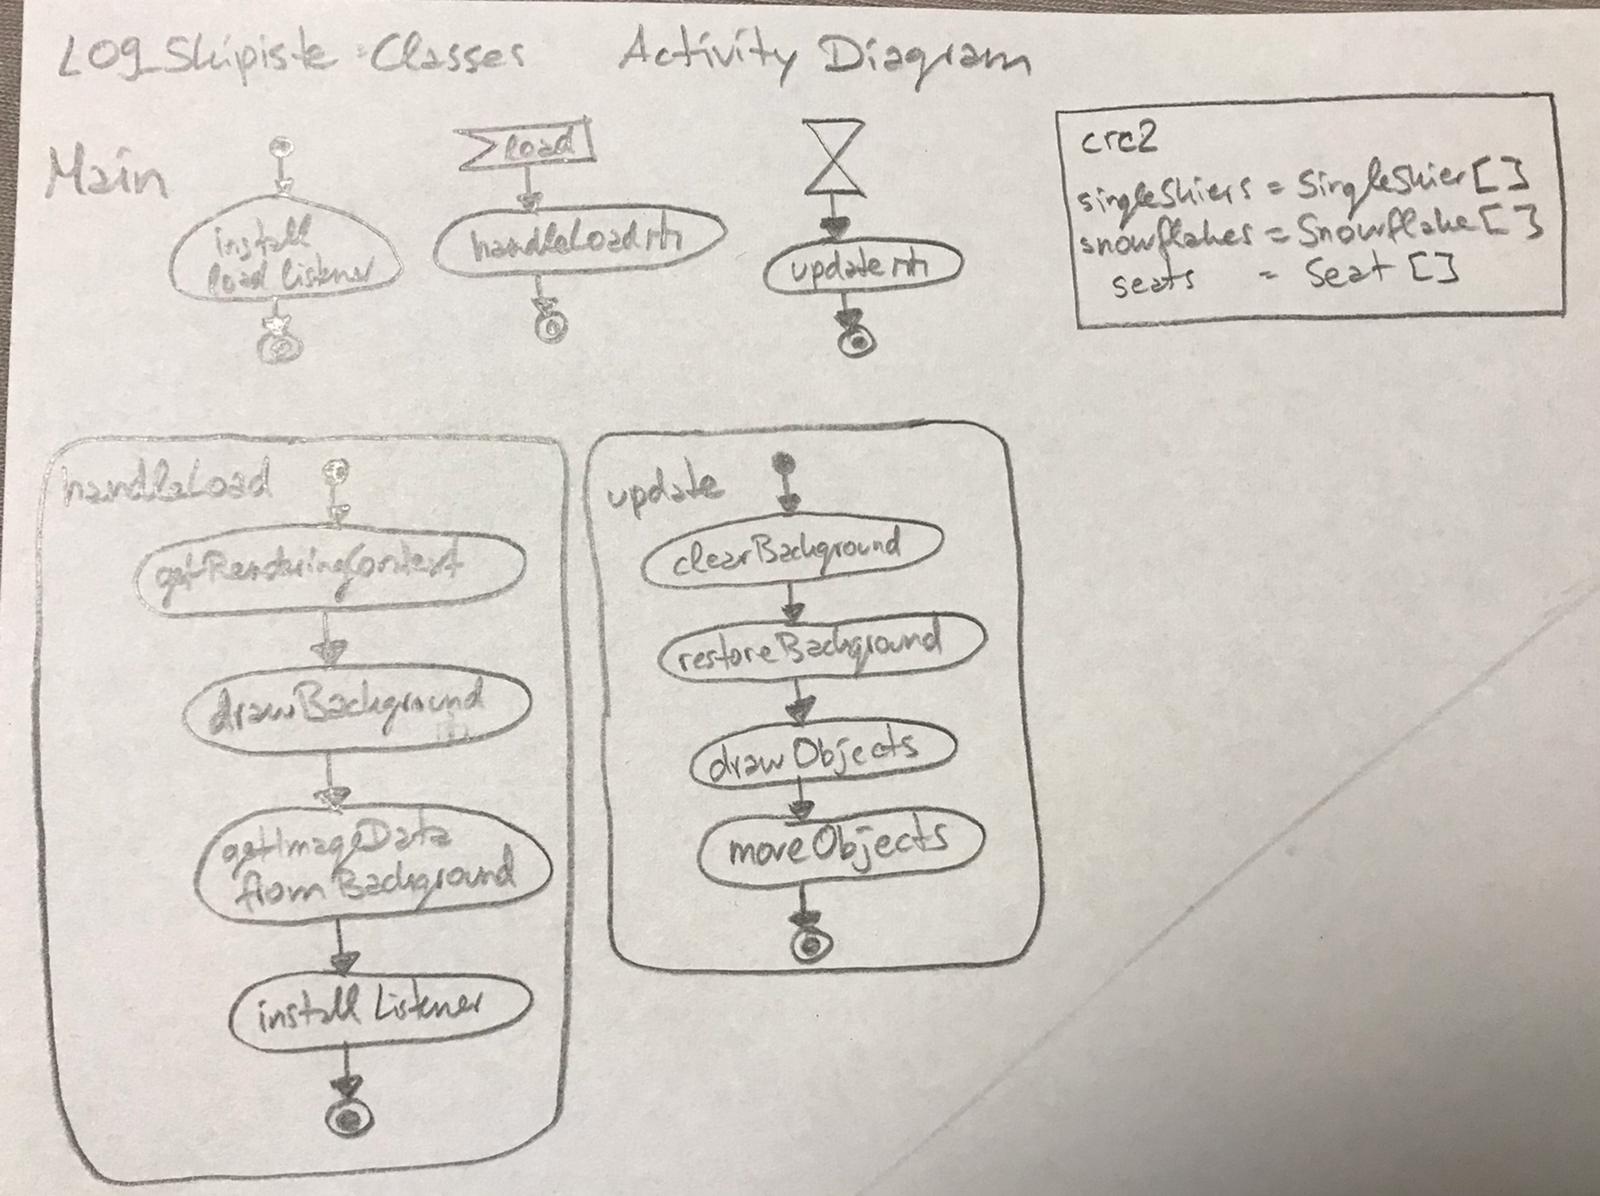 L09_Skipiste-Classes Activity Diagram
Main
install
load listener
load
handleLoad
update
crc2
singleSkiers = SingleSkier[]
snowflakes = Snowflake[]
seats = Seat[]
handleLoad
getRenderingContext
drawBackground
getImageData
from Background
install Listener
update
clearBackground
restoreBackground
drawObjects
moveObjects